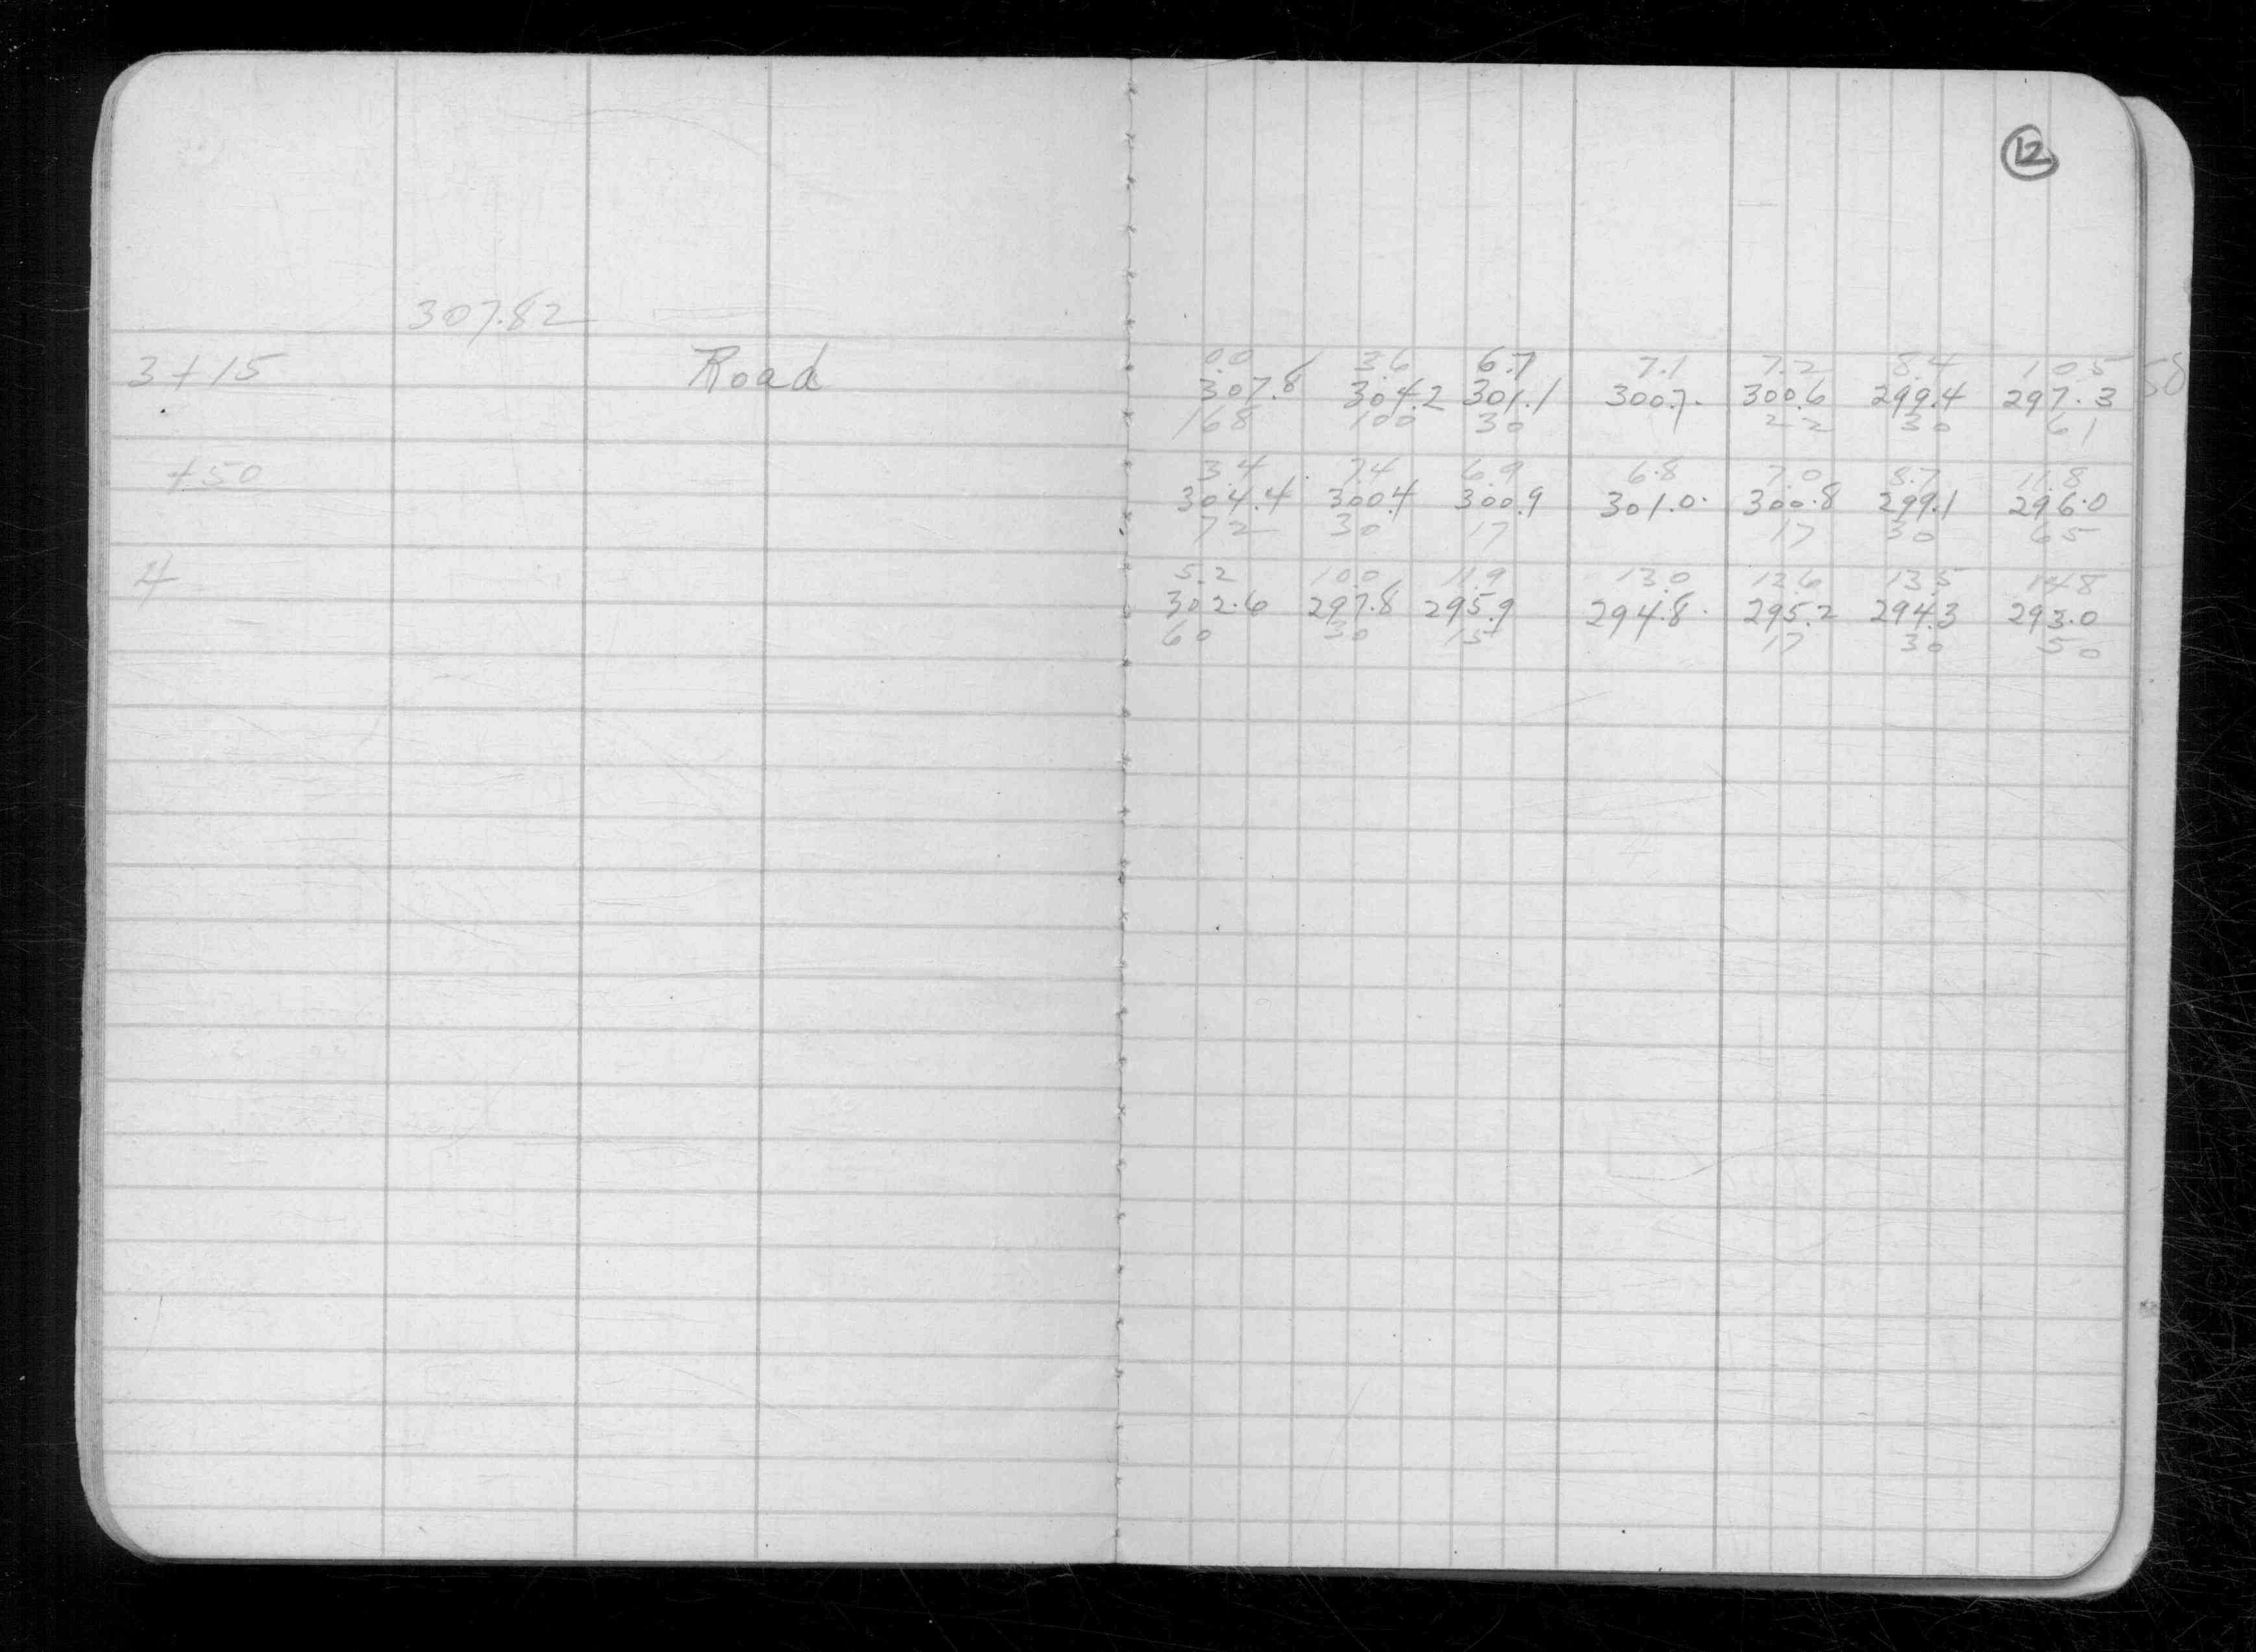 12
307.82
3+15 Road
0.0 3.6 6.7 7.1 7.2 8.4 10.5
307.8 304.2 301.1 300.7. 300.6 299.4 297.3 58
168 100 30 22 30 61
+50
3.4 7.4 6.9 6.8 7.0 8.7 11.8
304.4 300.4 300.9 301.0. 300.8 299.1 296.0
72 30 17 17 30 65
4
5.2 10.0 11.9 13.0 12.6 13.5 14.8
302.6 297.8 295.9 294.8. 295.2 294.3 293.0
60 30 15 17 30 50